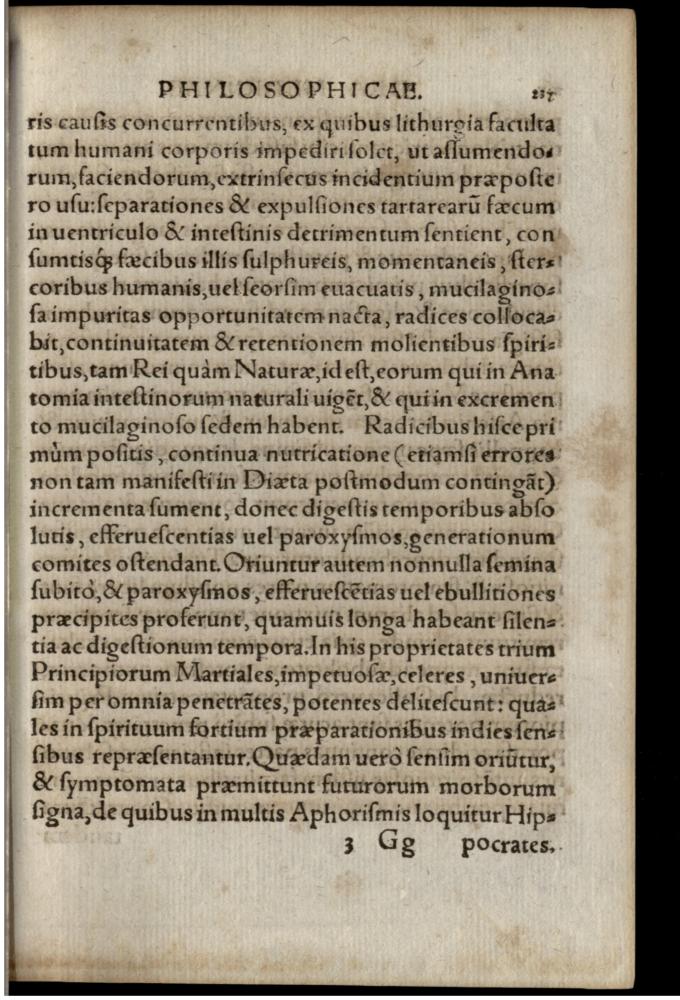 PHILOSOPHICAE. 237
ris causis concurrentibus, ex quibus lithurgia faculta
tum humani corporis impediri solet, ut assumendo⸗
rum, faciendorum, extrinsecus incidentium præposte
ro usu: separationes & expulsiones tartarearū fæcum
in uentriculo & intestinis detrimentum sentient, con
sumtisq́; fæcibus illis sulphureis, momentaneis, ster⸗
coribus humanis, uel seorsim euacuatis, mucilagino⸗
sa impuritas opportunitatem nacta, radices colloca⸗
bit, continuitatem & retentionem molientibus spiri⸗
tibus, tam Rei quàm Naturæ, id est, eorum qui in Ana
tomia intestinorum naturali uigēt, & qui in excremen
to mucilaginoso sedem habent. Radicibus hisce pri
mùm positis, continua nutricatione (etiamsi errores
non tam manifesti in Diæta postmodum contingāt)
incrementa sument, donec digestis temporibus abso
lutis, efferuescentias uel paroxysmos, generationum
comites ostendant. Oriuntur autem nonnulla semina
subitò, & paroxysmos, efferuescētias uel ebullitiones
præcipites proferunt, quamuis longa habeant silen⸗
tia ac digestionum tempora. In his proprietates trium
Principiorum Martiales, impetuosæ, celeres, uniuer⸗
sim per omnia penetrātes, potentes delitescunt: qua⸗
les in spirituum fortium præparationibus indies sen⸗
sibus repræsentantur. Quædam uerò sensim oriūtur,
& symptomata præmittunt futurorum morborum
signa, de quibus in multis Aphorismis loquitur Hip⸗
3 Gg pocrates.